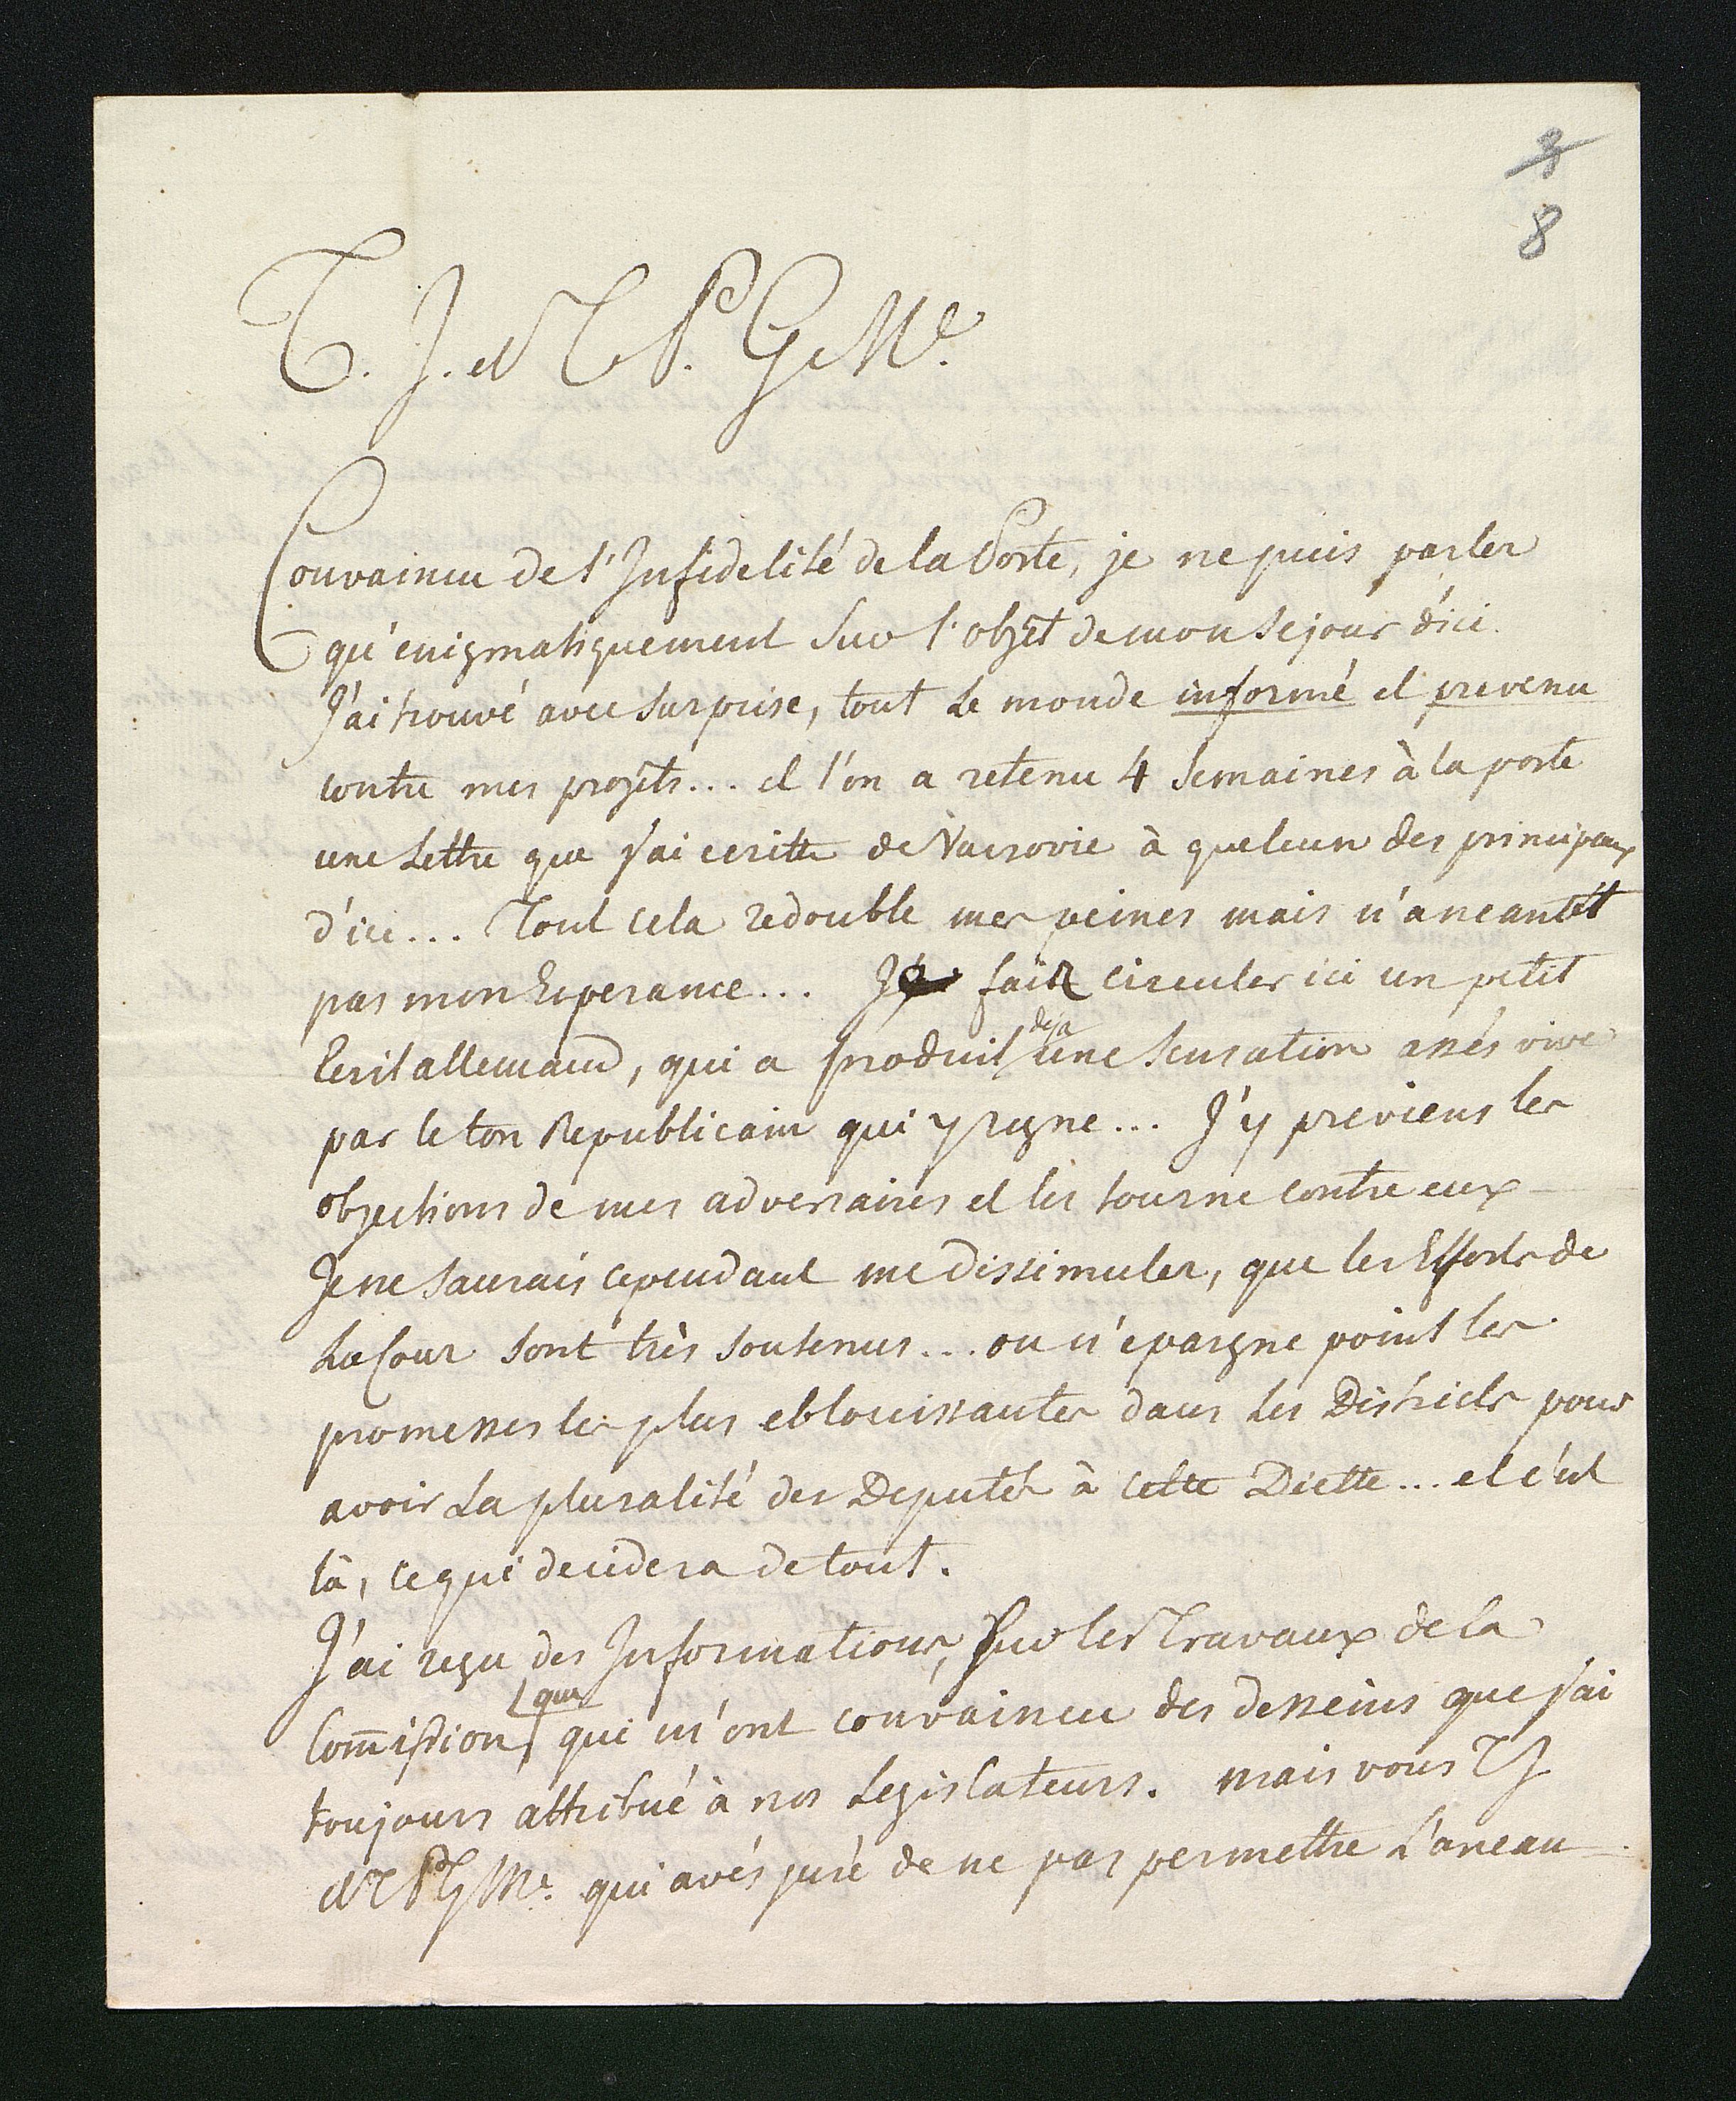 3
8
T. J. et T P. G Me.
Convaincu de l'Infidelité de la Poste, je ne puis parler
qu'enigmatiquement Sur l'objet de mon Sejour d'ici.
J'ai trouvé avec Surprise, tout le monde informé et prevenu
contre mes projets... et l'on a retenu 4 Semaines à la poste
une Lettre que j'ai ecritte de Varsovie à quelcun des principaux
d'ici... Tout cela redouble mes peines mais n'aneantit
pas mon Esperance... Je fais circuler ici un petit
Ecrit allemand, qui a produit deja une Sensation assés vive
par le ton Republicain qui y regne... J'y previens les
objections de mes adversaires et les tourne contre eux
Je ne Saurais cependant me dissimuler, que les Efforts de
La Cour Sont très Soutenus... on n'epargne point les
promesses les plus eblouissantes dans les Districts pour
avoir La pluralité des Deputés à cette Diette... et c'est
là, ce qui decidera de tout.
J'ai reçu des Informations, Sur les Travaux de la
Com̅ission que qui m'ont convaincu des desseins que j'ai
toujours attribué à nos Legislateurs. Mais vous T J
et T P G Me. qui avés juré de ne pas permettre L'anean